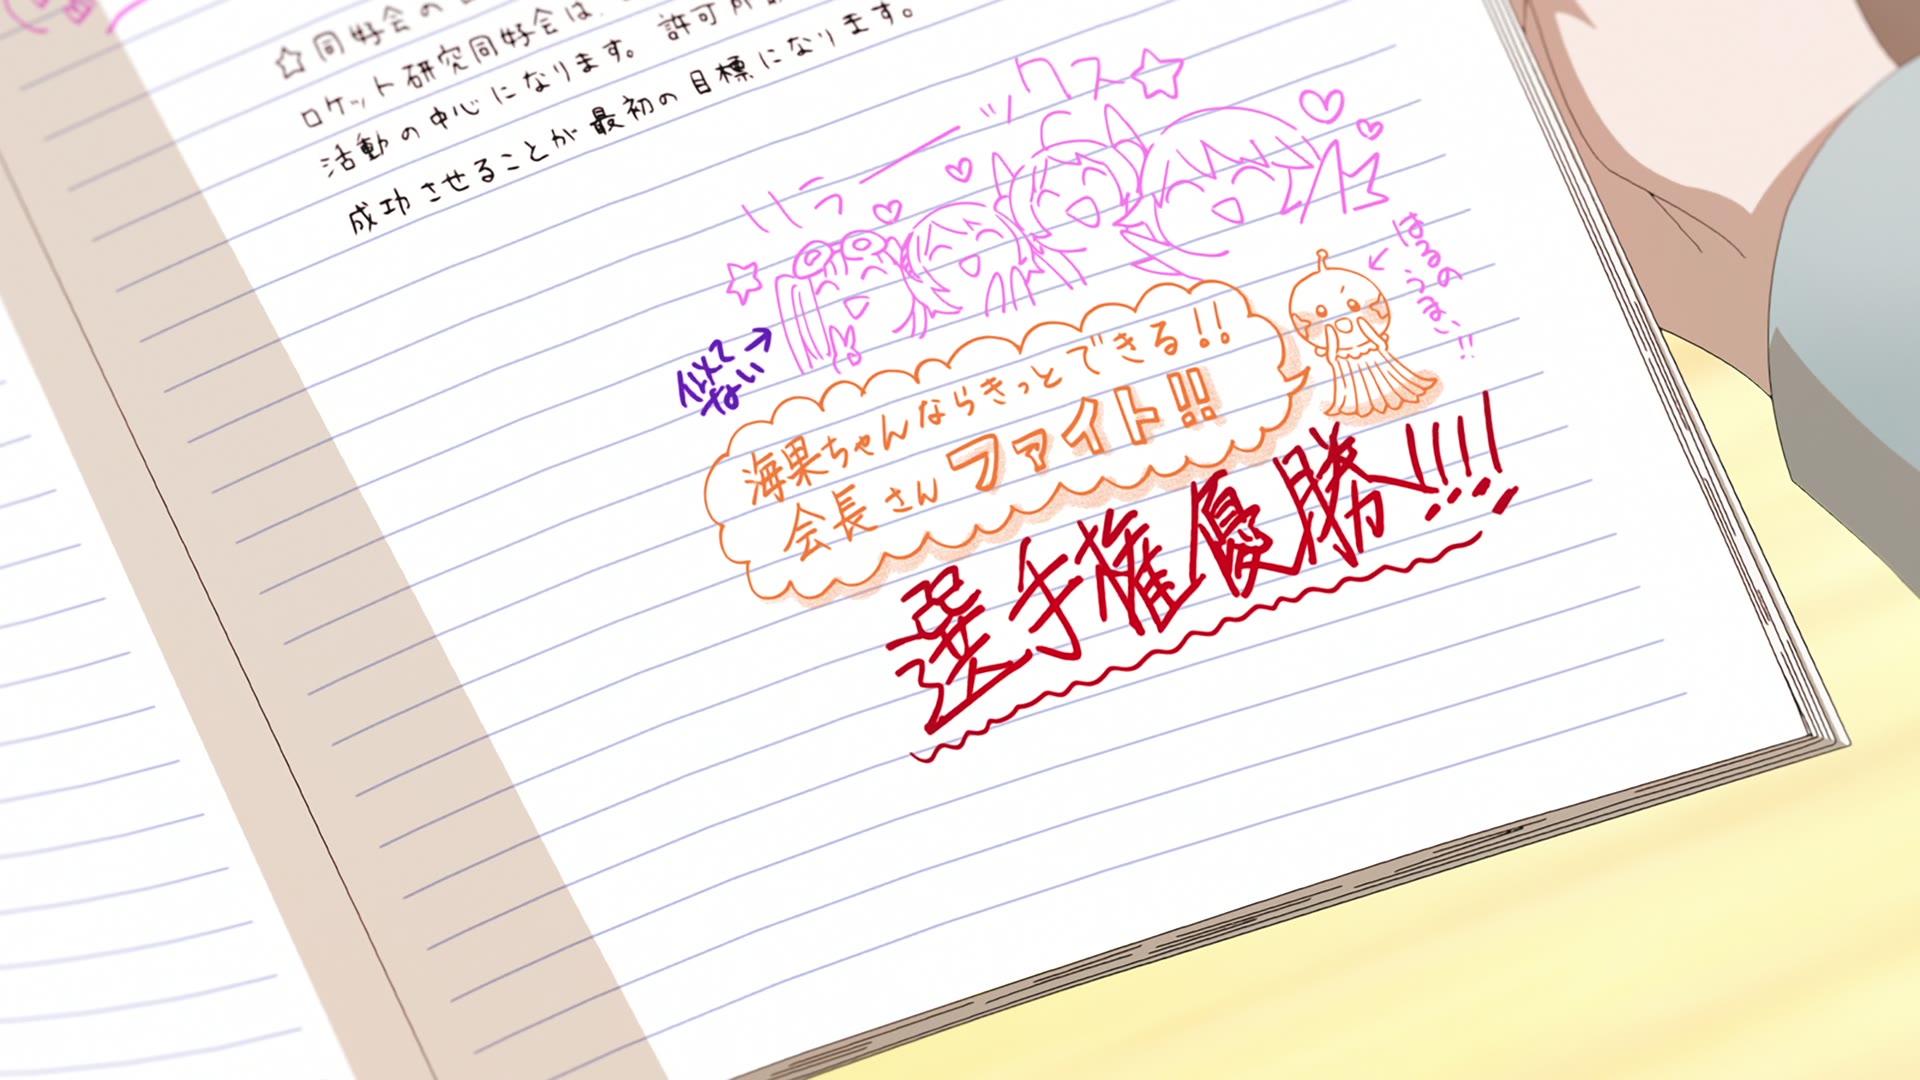 ☆同好会の
ロケット研究同好会は、
活動の中心になります。許可
成功させることが最初の目標になります。
リラーックス☆
はるの
うまい!!
似て
ない
海果ちゃんならきっとできる!!
会長さんファイト!!
選手権優勝!!!!